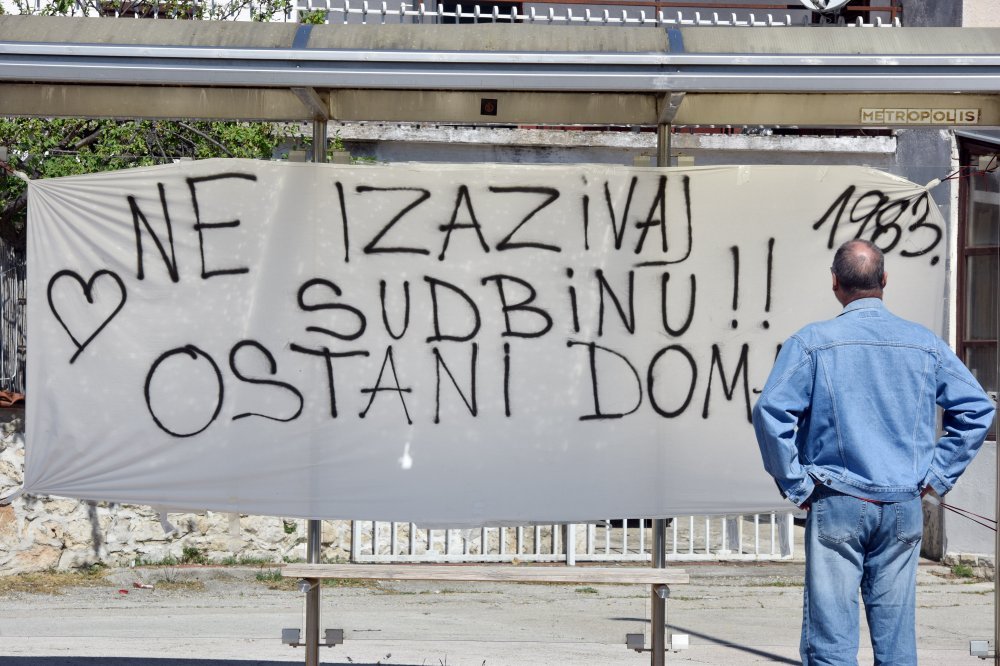 METROPOLIS
NE IZAZiVAJ 1983.
SUDBiNU!!
OSTANI DOMA